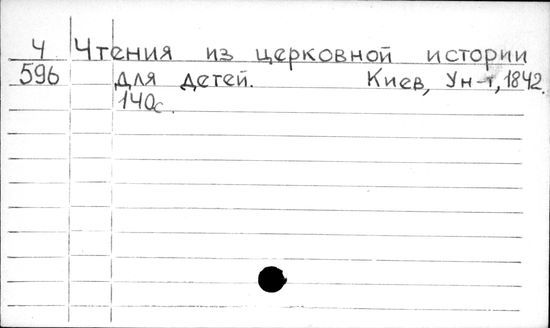 Ч Чтения из церковной истории
596 для детей. Киев, Ун-т, 1842.
140с.